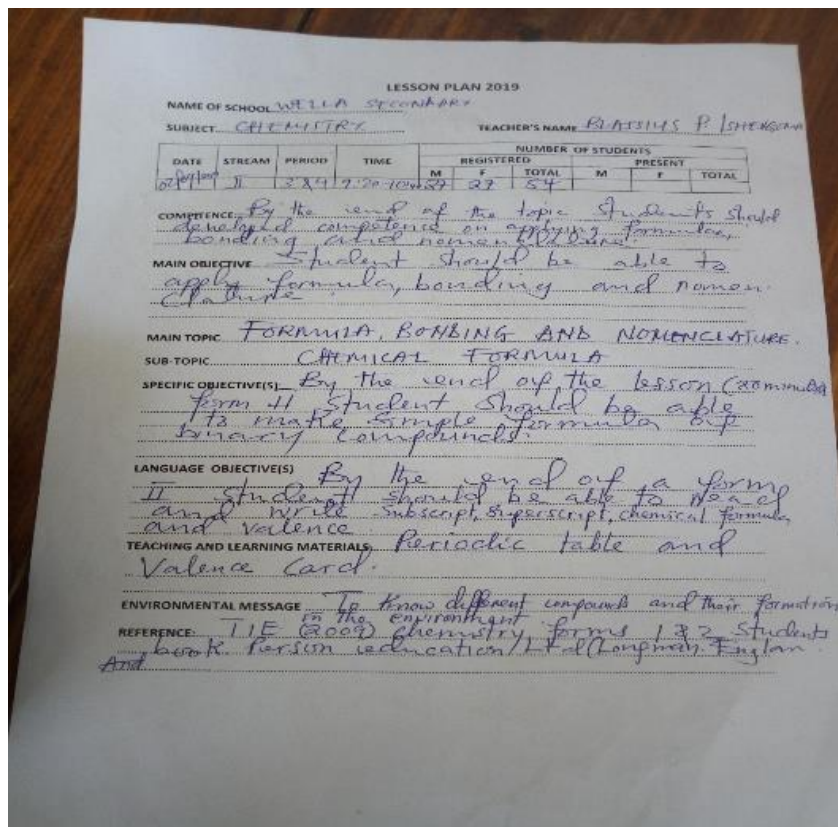 LESSON PLAN 2019
NAME OF SCHOOL WELLA SECONDARY
SUBJECT CHEMISTRY TEACHER'S NAME P. ISHENGOMA
NUMBER OF STUDENTS
DATE STREAM PERIOD TIME REGISTERED PRESENT
M F TOTAL M F TOTAL
II 3 & 4 27 27 54
COMPETENCE: By the end of the topic students should
developed competence on applying formula,
bonding and nomenclature.
MAIN OBJECTIVE Student should be able to
apply formula, bonding and nomen-
clature.
MAIN TOPIC FORMULA, BONDING AND NOMENCLATURE.
SUB-TOPIC CHEMICAL FORMULA
SPECIFIC OBJECTIVE(S) By the end of the lesson (80 minutes)
form II student should be able
to make simple formula of
binary compounds.
LANGUAGE OBJECTIVE(S) By the end of a form
II student should be able to read
and write subscript, superscript, chemical formula,
and valence
TEACHING AND LEARNING MATERIALS Periodic table and
Valence Card.
ENVIRONMENTAL MESSAGE To know different compounds and their formation
in the environment
REFERENCE: TIE (2009) Chemistry forms 1 & 2 Students
book. Person education Ltd (Longman. Englan.
And